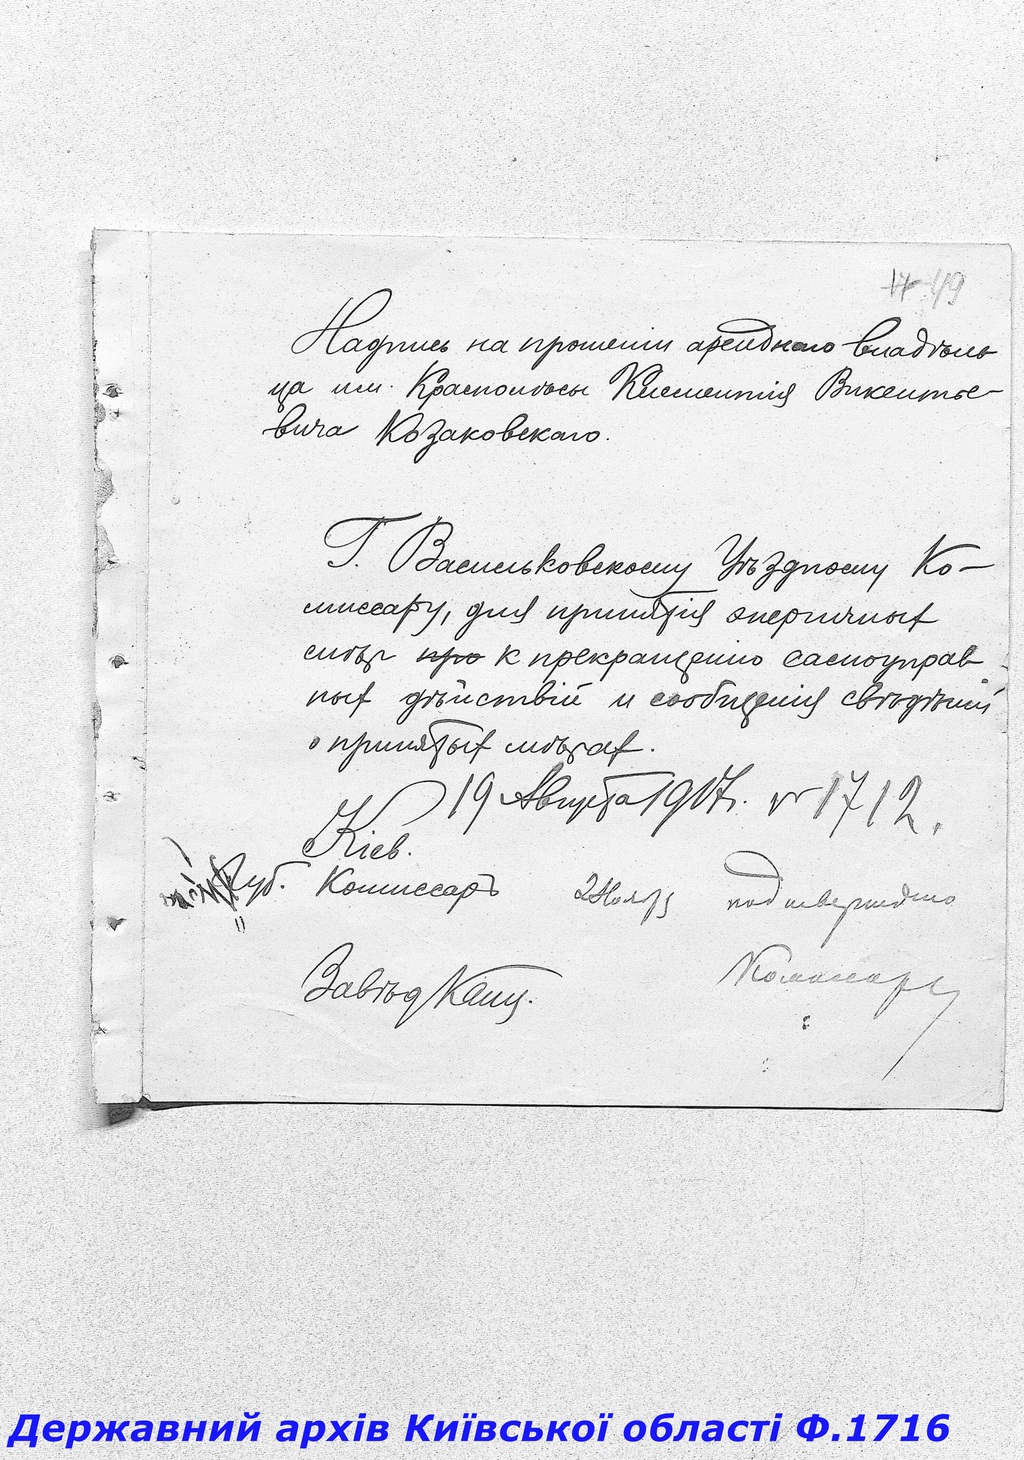 49
Надпись на прошеніи арендного владѣль
ца им. Краснолѣсы Климентія Викентье-
вича Козаковскаго.
Г. Васильковскому Уѣздному Ко-
миссару, для принятія энергичных
мѣр про к прекращенію самоуправ
ных дѣйствій и сообщенія свѣдѣний
о принятых мѣрах.
19 Августа 1917г. № 1712.
Кіев.
Губ. Комиссаръ
подтверждено
Завѣд Канц.
Комиссаръ
Державний архів Київської області Ф.1716